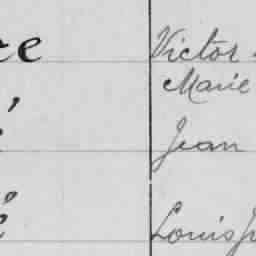 re Victor
Marie
Jean
Louis J